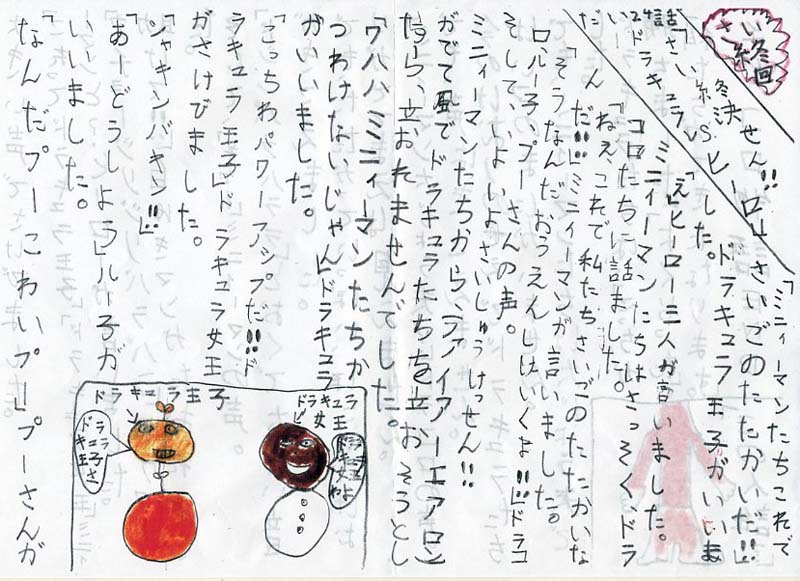 さい終回
24話「さい終決せん!!
ドラキュラVSヒーロー」
「ミニィーマンたちこれで
さいごのたたかいだ!!」
ドラキュラ王子がいいま
した。
「え」ヒーロー三人が言いました。
ミニィーマンたちはさっそく、ドラ
コロたちに話ました。
「ねえこれで私たちさいごのたたかいな
んだ!!」ミニィーマンが言いました。
「そうなんだおうえんしにいくよ!!」ドラコ
ロルー子、プーさんの声。
そして、いよいよさいしゅうけっせん!!
ミニィーマンたちから、(ファイアーエアロン)
がでて風でドラキュラたちを立おそうとし
たら、立おたませんでした。
「ワハハミニィーマンたちか
つわけないじゃん」ドラキュラ
がいいました。
「こっちわパワーアップだ!!」ド
ラキュラ王子」ドラキュラ女王子
がさけびました。
「シャキンバキン!!」
「あーどうしよう」ルー子が
いいました。
「なんだプーこわいプー」プーさんが
ドラキュラ
女王
ドラキュラ王子